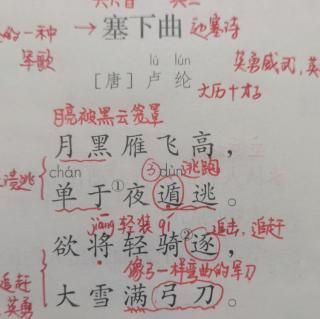 共六首 共二
的一种 → 塞下曲 边塞诗
军歌 lú lún 英勇威武，英
[唐] 卢纶 大历十才子
月亮被黑云笼罩
月黑雁飞高，
chán ③dùn逃跑
单于①夜遁逃。
jiāng 轻装 qí 追击，追赶
欲将轻骑②逐，
追赶 像弓一样弯曲的军刀
英勇 大雪满弓刀。